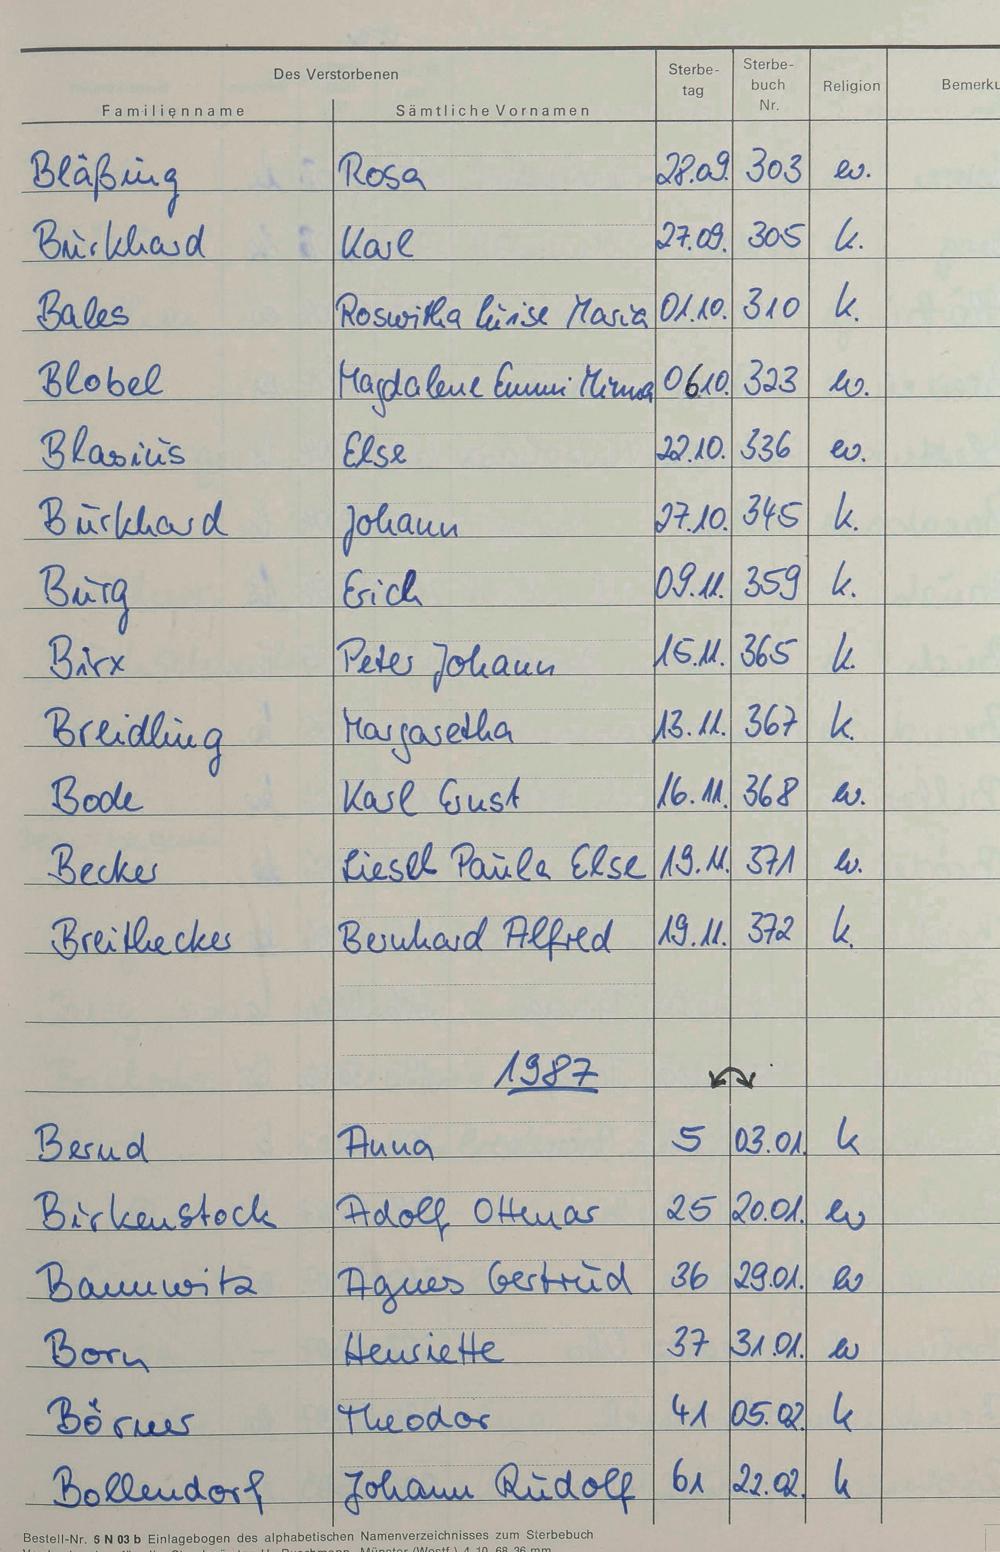 Des Verstorbenen Sterbe- Sterbe-
tag buch Religion Bemerku
Familienname Sämtliche Vornamen Nr.
Bläßing Rosa 28.09. 303 ev.
Burkhard Karl 27.09. 305 k.
Bales Roswitha Luise Maria 01.10. 310 k.
Blobel Magdalene Emmi Minna 06.10. 323 ev.
Blasius Else 22.10. 336 ev.
Burkhard Johann 27.10. 345 k.
Burg Erich 09.11. 359 k.
Birx Peter Johann 15.11. 365 k.
Breidling Margaretha 13.11. 367 k.
Bode Karl Ernst 16.11. 368 ev.
Becker Liesel Paula Else 19.11. 371 ev.
Breithecker Bernhard Alfred 19.11. 372 k.
1987
Bernd Anna 5 03.01. k
Birkenstock Adolf Ottmar 25 20.01. ev
Bannwitz Agnes Gertrud 36 29.01. ev
Born Henriette 37 31.01. ev
Börner Theodor 41 05.02. k
Bollendorf Johann Rudolf 61 22.02. k
Bestell-Nr. 5 N 03 b Einlagebogen des alphabetischen Namenverzeichnisses zum Sterbebuch